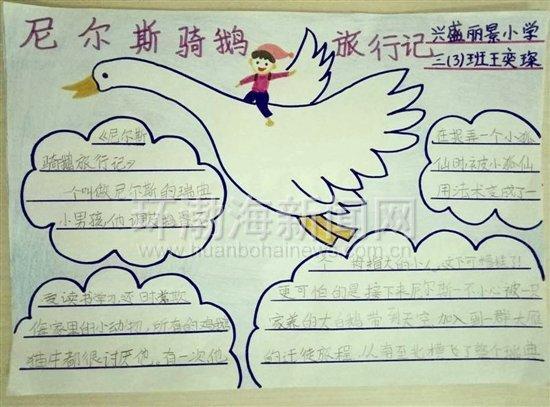 尼尔斯骑鹅旅行记
兴盛丽景小学
三(3)班王奕琛
《尼尔斯
骑鹅旅行记》
一个叫做尼尔斯的瑞典
小男孩,他调皮捣蛋
爱读书学习,还时常欺
侮家里的小动物,所有的鸡鹅
猫牛都很讨厌他。有一次他
在捉弄一个小狐
仙时被小狐仙
用法术变成了一
个拇指大的小人,这下可糟糕了!
更可怕的是接下来尼尔斯一不小心被一只
家养的大白鹅带到天空加入到一群大雁
的迁徙旅程,从南至北横飞了整个瑞典
环渤海新闻网
www.huanbohainews.com.cn